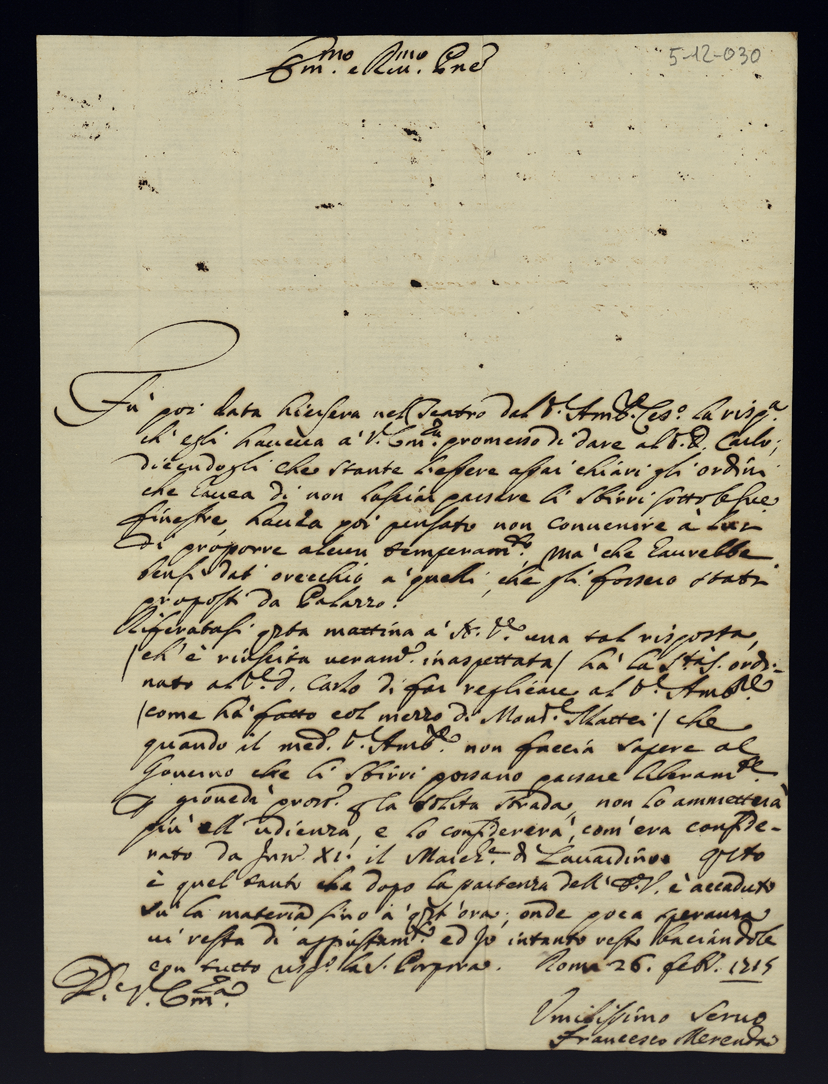 5-12-030
Em.mo e Rev.mo Pne
Fu' poi data hiersera nell Teatro dal S.r Amb.r Ces.o la risp.a
ch'egli haveva a V. Em.za promesso di dare al S. D. Carlo,
dicendogli che stante l'essere assai chiari gli ordini
che havea di non lasciar passare li Sbirri sotto le sue
finestre, havea poi pensato non convenire à Lui
di proporre alcun temperam.to, ma' che haurebbe
bensi dato orecchio a' quelli, che gli fossero stati
proposti da Palazzo.
Riferatasi q.sta mattina à N. S.re una tal risposta,
(ch'è riuscita veram.e inaspettata) hà la Stà S. ordi-
nato al S.r D. Carlo di far replicare al S.r Amb.re
(come hà fatto col mezzo di Mons.r Mattei) che
quando il med. S.r Amb.r non faccia sapere al
Governo che li Sbirri possano passare liberam.te
giovedì pross.o p la solita strada, non lo ammetterà
più all'udienza, e lo considererà, com'era conside-
rato da Inn. XI. il March.e di Lavardino. Questo
è quel tanto che dopo la partenza dell' E.V. è accaduto
sù la materia sino à q.st'ora, onde poca speranza
vi resta di aggiustam.to ed Io intanto resto baciandole
con tutto risp.o la S. Porpora. Roma 26. feb.o 1715
D. V. Em.za
Umilissimo Servo
Francesco Merenda